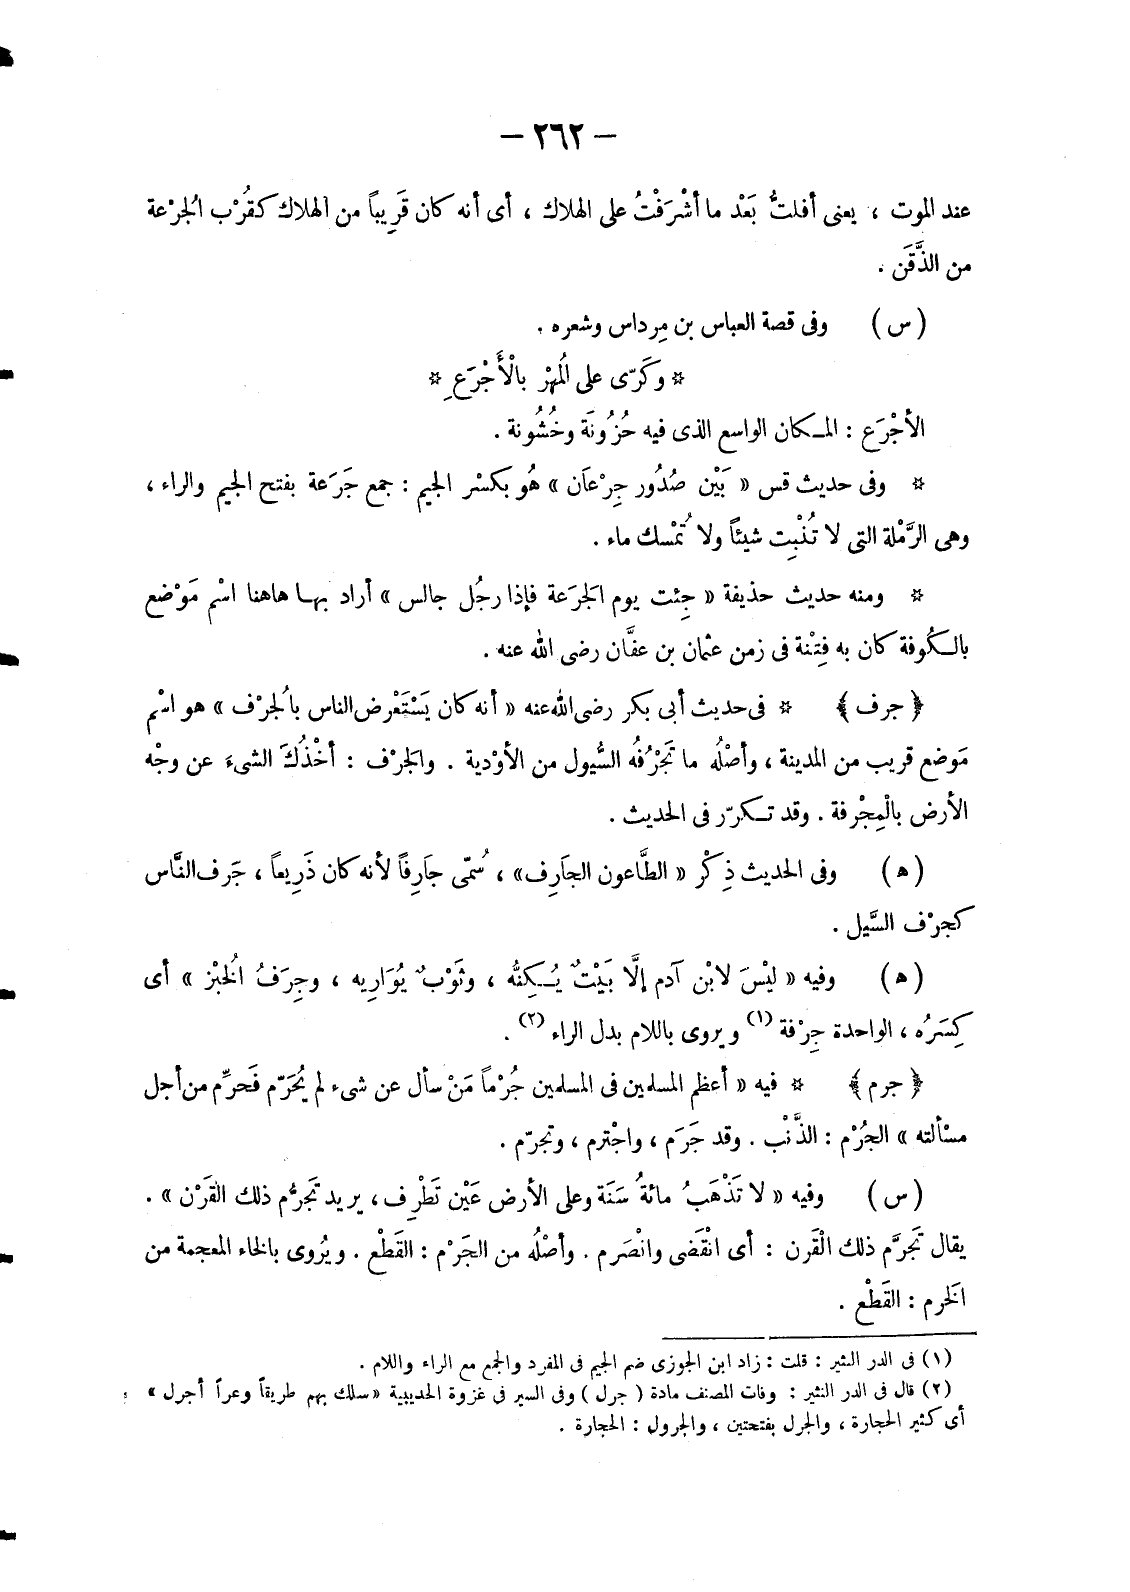 — ٢٦٢ —
عند الموت ، يعنى أفلتُّ بَعْد ما أشْرَفْتُ على الهلاك ، أى أنه كان قَرِيباً من الهلاك كقُرْب الجُرْعة
من الذَّقَن .
( س ) وفى قصة العباس بن مِرداس وشعره .
* وكَرّى على المُهْر بالْأَجْرَعِ *
الأجْرَع : المكان الواسع الذى فيه حُزُونَة وخُشُونة .
* وفى حديث قس « بَيْن صُدُور جِرْعَان » هُو بكسْر الجيم : جمع جَرَعة بفتح الجيم والراء ،
وهى الرَّمْلة التى لا تُنْبِت شيئاً ولا تُمْسك ماء .
* ومنه حديث حذيفة « جِئت يوم الجَرَعة فإذا رجُل جالس » أراد بها هاهنا اسْم مَوْضع
بالكُوفة كان به فِتْنة فى زمن عثمان بن عفَّان رضى الله عنه .
﴿ جرف ﴾ * فى حديث أبى بكر رضى الله عنه « أنه كان يَسْتَعْرِض الناس بالجُرْف » هو اسْم
مَوضع قريب من المدينة ، وأصْلُه ما تَجْرُفُه السُّيول من الأوْدية . والجَرْف : أخْذُكَ الشىءَ عن وجْه
الأرض بالْمِجْرفة . وقد تكرّر فى الحديث .
( ه ) وفى الحديث ذِكْر « الطَّاعون الجَارِف » ، سُمّى جَارِفاً لأنه كان ذَرِيعاً ، جَرف النَّاس
كجرْف السَّيل .
( ه ) وفيه « ليْسَ لابْن آدم إلَّا بَيْتٌ يُكِنُّه ، وثَوْبٌ يُوَارِيه ، وجِرَفُ الخُبْز » أى
كِسَرُه ، الواحدة جِرْفة (١) ويروى باللام بدل الراء (٢) .
﴿ جرم ﴾ * فيه « أعظم المسلمين فى المسلمين جُرْماً مَنْ سأل عن شىء لم يُحَرّم فَحرِّم من أجل
مسْألته » الجُرْم : الذَّنْب . وقد جَرَم ، واجْترم ، وتجرّم .
( س ) وفيه « لا تَذْهَبُ مائةُ سَنَة وعلى الأرض عَيْن تَطْرِف ، يريد تَجَرُّم ذلك القَرْن » .
يقال تَجرَّم ذلك الْقَرن : أى انْقَضى وانْصَرم . وأصْلُه من الجَرْم : القَطْع . ويُروى بالخاء المعجمة من
الخَرم : القَطْع .
(١) فى الدر النثير : قلت : زاد ابن الجوزى ضم الجيم فى المفرد والجمع مع الراء واللام .
(٢) قال فى الدر النثير : وفات المصنف مادة ( جرل ) وفى السير فى غزوة الحديبية « سلك بهم طريقاً وعراً أجرل » ؛
أى كثير الحجارة ، والجرل بفتحتين ، والجرول : الحجارة .